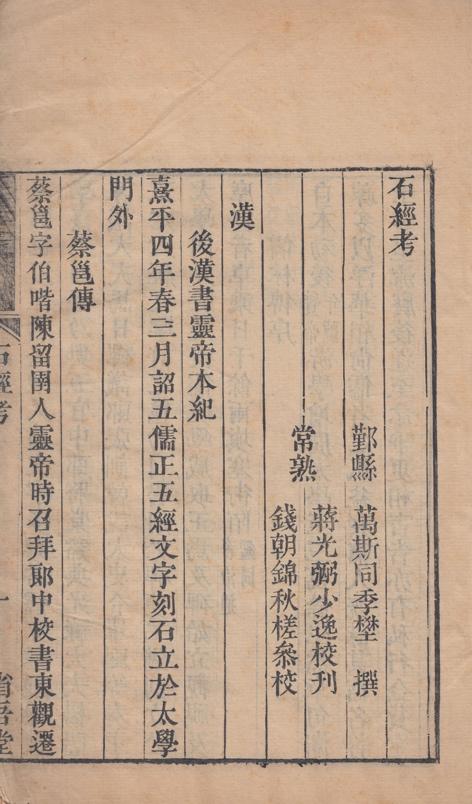 石經考
鄞縣 萬斯同季壄 撰
常熟
蔣光弼少逸校刊
錢朝錦秋槎叅校
漢
後漢書靈帝本紀
熹平四年春三月詔五儒正五經文字刻石立於太學
門外
蔡邕傳
蔡邕字伯喈陳留圉人靈帝時召拜郎中校書東觀遷
石經考 一 省吾堂